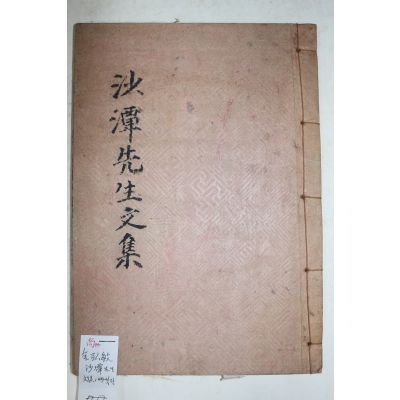 沙潭先生文集
金弘敏
沙潭先生